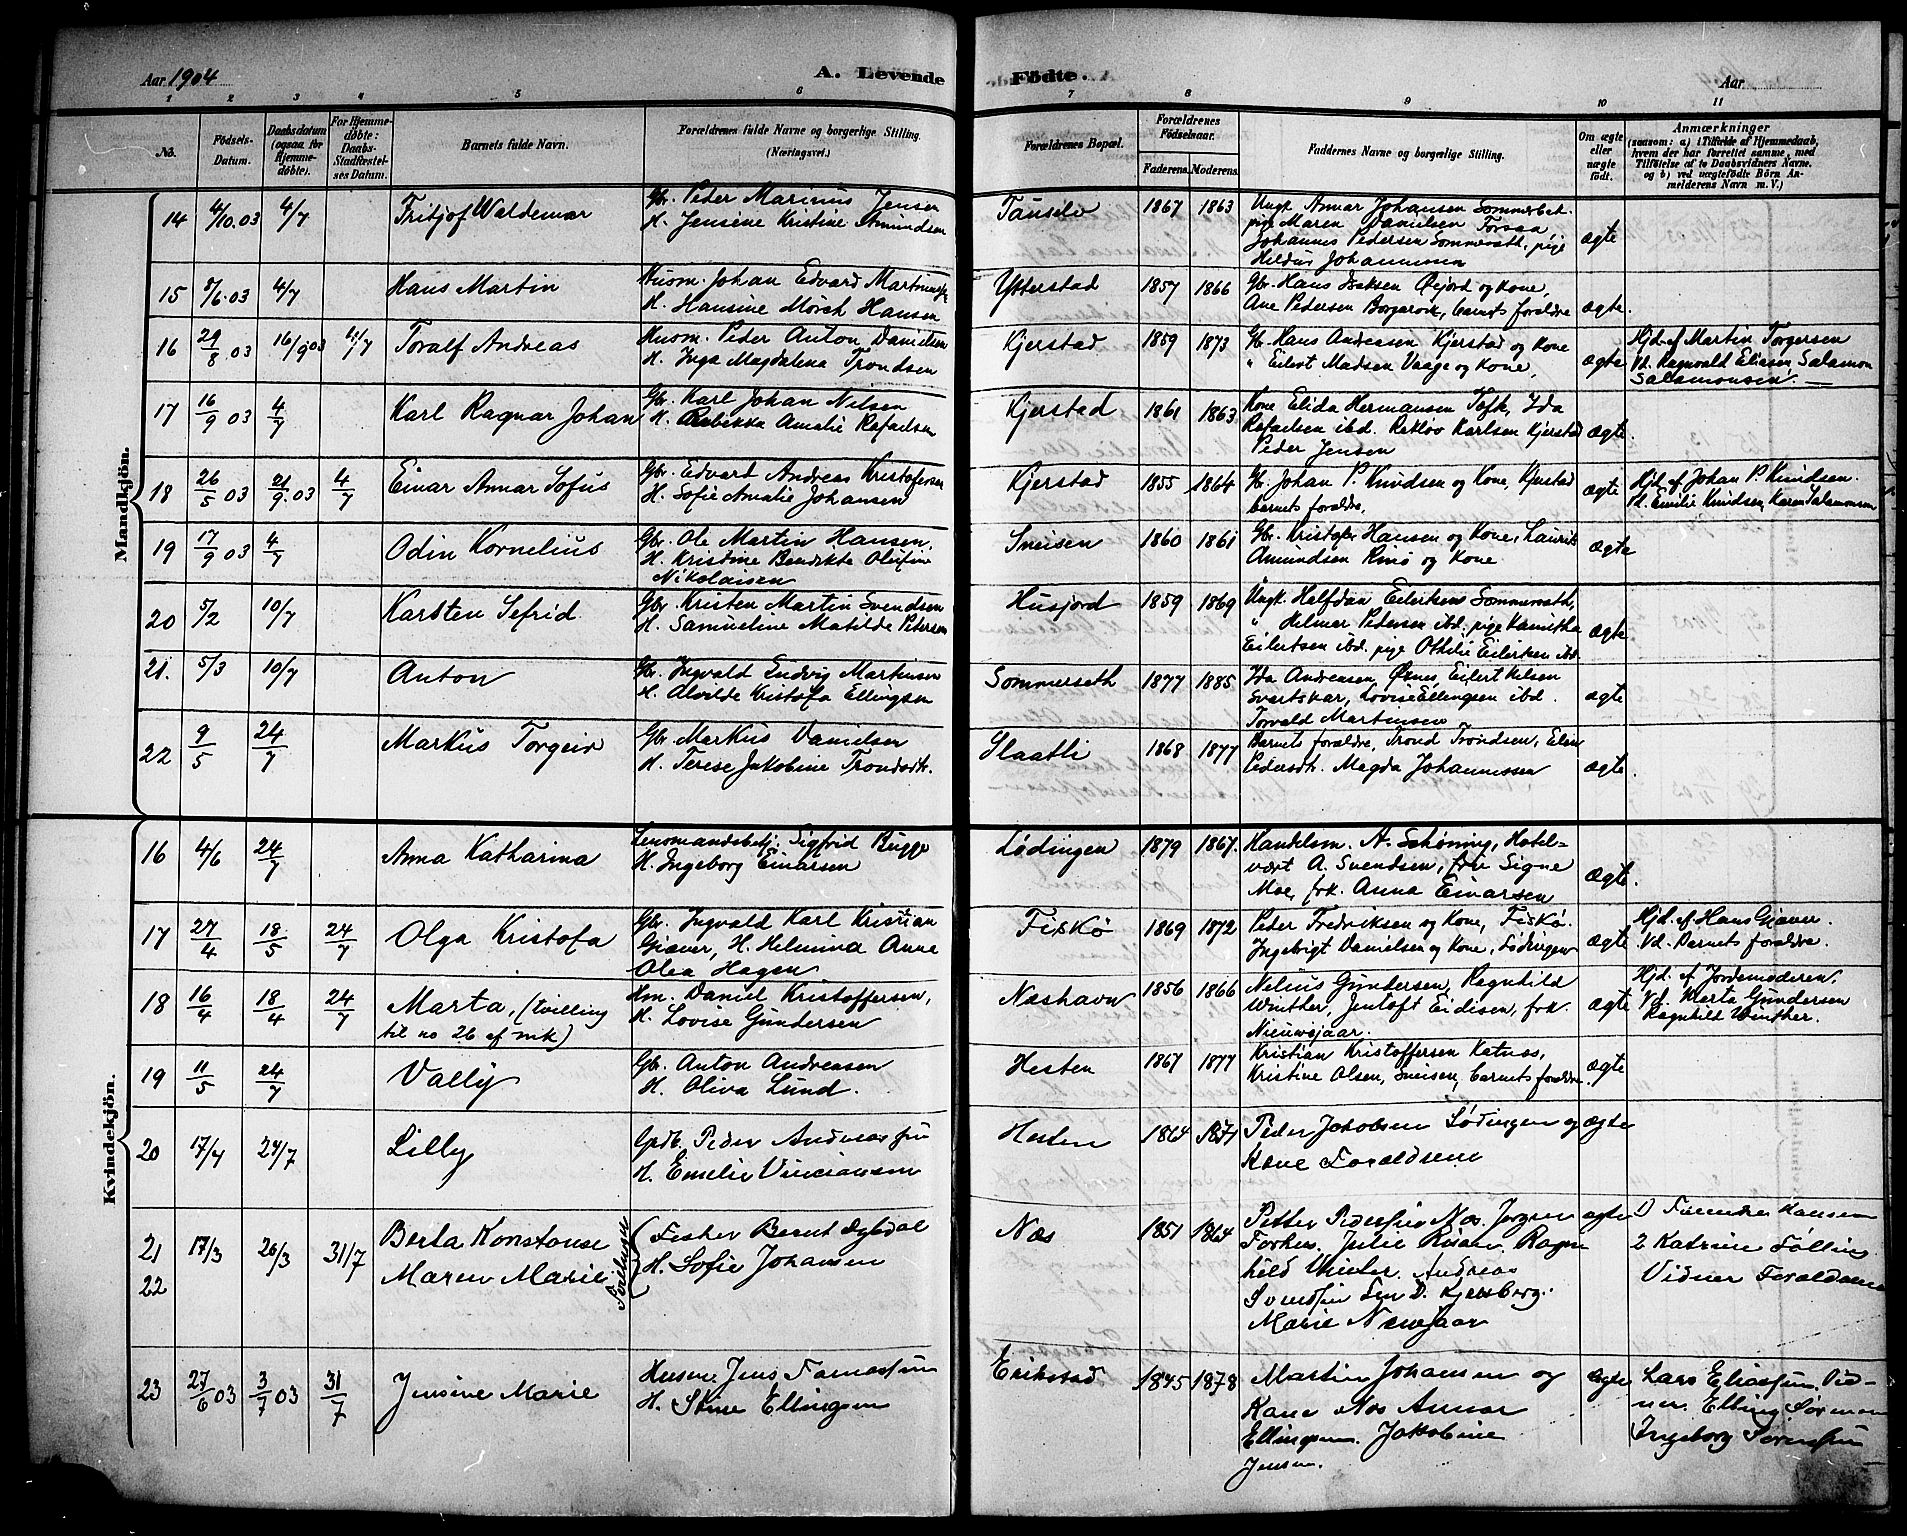 Aar 1904
A. Levende
Födte.
Aar
1 2 3 4 5 6 7 8 9 10 11
No.
Födsels-Datum.
Daabsdatum (ogsaa for Hjemme-döbte).
For Hjemme-döbte: Daabs-Stadfæstel-ses Datum.
Barnets fulde Navn.
Forældrenes fulde Navne og borgerlige Stilling.
(Næringsvei.)
Forældrenes Bopæl.
Forældrenes Födselsaar.
Faderens. Moderens.
Faddernes Navne og borgerlige Stilling.
Om ægte eller uægte födt.
Anmærkninger
(saasom: a) i Tilfælde af Hjemmedaab,
hvem der har forrettet samme, med
Tilföielse af to Daabsvidners Navne,
og b) ved uægtefödte Börn An-
melderens Navn m. V.)
Mandkjön.
14 4/10.03 4/7 Fritjof Waldemar
Gbr. Peder Marinus Jensen
H. Jensine Kristine Amundsen
1867 1863
Ungk. Annar Johansen Sommerset.
pige Maren Danielsen
Johannes Pedersen Sommerseth, pige
Johannessen
ægte
15 /6.03 4/7 Hans Martin
Husm. Johan Edvard
H. Hansine Mörch Hansen
Ytterstad 1857 1866
Gbr. Hans Isaksen Øijord og kone,
Ane Pedersen barnets forældre
ægte.
16 29/8 03 16/9 03 4/7 Toralf Andreas
Husm. Peder Anton Danielsen
H. Inga Magdalena Trondsen
Kjerstad 1859 1873
Gb. Hans Andreasen Kjerstad og kone
" Eilert Madsen Vaage og kone,
ægte
Hjd. af Martin Torgersen
Vd. Ragnvald Eliasen, Salamon
Salamonsen.
17 16/9 03 4/7 Karl Ragnar Johan
Gbr. Karl Johan Nilsen
H. Rebekka Amalie Rafaelsen
Kjerstad 1861 1863
Kone Elida Hermansen Ida
Rafaelsen ibd. Karlsen Kjerstad
Peder Jensen
ægte.
18 26/5 03 21/9.03 4/7 Einar Annar Sofus
Gbr. Edvard Andreas Kristofersen
H. Sofie Amalie Johansen
Kjerstad 1855 1864
Gb. Johan P. Knudsen og Kone, Kjerstad
barnets forældre.
ægte
Hjd. af Johan P. Knudsen.
Vd. Emilie Knudsen, Karen Salamonsen
19 17/9 03 4/7 Odin Kornelius
Gbr. Ole Martin Hansen.
H. Kristine Bendikte Olufine
Nikolaisen
Sneisen 1860 1861
Gbr. Kristofer Hansen og Kone, Laurits
Amundsen Rinö og Kone.
ægte
20 5/2 10/7 Karsten Sefrid.
Gbr. Kristen Martin Svendsen
H. Samueline Matilde Petersen
Husjord 1859 1869
Ungk. Halfdan Eilertsen Sommerseth,
" Helmer Pedersen ibd. pige
Eilertsen ibd. pige Othilie Eilertsen ibd.
ægte
21. 5/3 10/7 Anton
Gbr. Ingvald Ludvig Martinsen
H. Alvilde Kristofa Ellingsen
Sommerseth 1877 1885
Ida Andreasen, Øxnes, Eilert Nilsen
Svartskar, Lovise Ellingsen ibd.
Torvald Martinsen
ægte
22 9/5 24/7 Markus Torgeir
Gbr. Markus Danielsen
H. Terese Jakobine Trondsdtr.
Slaatli 1868 1877
Barnets forældre, Trond Trondsen, Elen
Pedersdtr. Magda Johannessen
ægte.
Kvindekjön.
16 4/6 24/7 Anna Katharina
Lensmandsbetj: Sigfrid Bugge
H. Ingeborg Einarsen
Lödingen 1879 1867.
Handelsm. A. Schöning, Hotel-
vært A. Svendsen, fru Signe
Moe, frk. Anna Einarsen
ægte.
17 27/4 18/5 24/7 Olga Kristofa
Gbr. Ingvald Karl Kristian
Gjæver, H. Helmina Anne
Olea Hagen
Fiskö 1869 1872
Peder Fredriksen og Kone, Fiskö.
Ingebrigt Danielsen og Kone, Lödingen
ægte
Hjd. af Hans Gjæver.
Vd. Barnets forældre.
18 16/4 18/4 24/7 Marta, (tvilling
til no 26 af mk)
Hm. Daniel Kristoffersen,
H. Lovise Gundersen
Næshavn 1856 1866
Nelius Gundersen, Ragnhild
Winther, Jentoft Eidisen, frk.
Nieuwejaar.
ægte
Hjd. af Jordemoderen,
Vd. Marta Gundersen
Ragnhild Winther.
19 11/5 24/7 Vally
Gb. Anton Andreasen
H. Oliva Lund.
Hesten 1867 1877
Kristian Kristoffersen
Kristine Olsen, Sneisen, barnets forældre.
ægte
20 17/4 24/7 Lilly
Peder Andreassen
H. Emelie
Hesten 1864 1871
Peder Jakobsen Lödingen og
Kone Forældrene
ægte
21
22 17/3 26/3 31/7 Berta Konstanse
Maren Marie
Tvillinger
Fisker Bernt
H. Sofie Johansen
Næs 1851 1864
Petter Pedersen Næs. Jörgen
Julie Ragn
hild Winter. Andreas
Svendsen
Marie
ægte
1) Hansen
2 Katrine Fölling
Vidner Forældrene
23 27/6 03 3/7 03 31/7 Jensine Marie
Husm. Jens
H. Stine Ellingsen
Erikstad 1845 1878
Martin Johansen og
Kone Næs Annar
Ellingsen. Jakobine
Jensen.
ægte
Lars Eliassen. Vid-
ner. Elling Sörensen
Ingeborg Sörensen